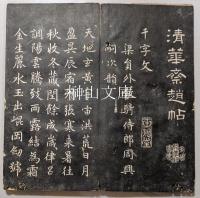 清華齋趙帖
千字文
梁負外散騎侍郎周興
嗣次韻
天地玄黃宇宙洪荒日月
盈昃辰宿列張寒來暑往
秋收冬藏閏餘成歲律呂
調陽雲騰致雨露結為霜
金生麗水玉出崐岡劍號
榊山文庫